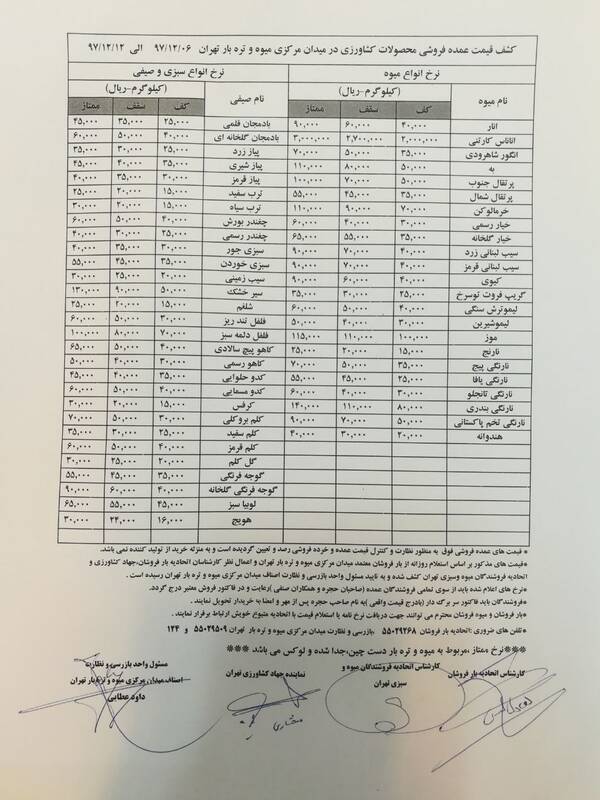 کشف قیمت عمده فروشی محصولات کشاورزی در میدان مرکزی میوه و تره بار تهران ۹۷/۱۲/۰۶ الی ۹۷/۱۲/۱۲
نرخ انواع میوه نرخ انواع سبزی و صیفی
نام میوه (کیلوگرم-ریال) نام صیفی (کیلوگرم-ریال)
کف سقف ممتاز کف سقف ممتاز
انار ۴۰,۰۰۰ ۶۰,۰۰۰ ۹۰,۰۰۰ بادمجان قلمی ۲۵,۰۰۰ ۳۵,۰۰۰ ۴۵,۰۰۰
اناناس کارتنی ۲,۰۰۰,۰۰۰ ۲,۷۰۰,۰۰۰ ۳,۰۰۰,۰۰۰ بادمجان گلخانه ای ۴۰,۰۰۰ ۵۰,۰۰۰ ۶۰,۰۰۰
انگور شاهرودی ۳۵,۰۰۰ ۵۰,۰۰۰ ۷۰,۰۰۰ پیاز زرد ۲۵,۰۰۰ ۳۰,۰۰۰ ۳۵,۰۰۰
به ۵۰,۰۰۰ ۸۰,۰۰۰ ۱۱۰,۰۰۰ پیاز شیری ۳۵,۰۰۰ ۴۰,۰۰۰ ۴۵,۰۰۰
پرتقال جنوب ۵۰,۰۰۰ ۷۰,۰۰۰ ۱۰۰,۰۰۰ پیاز قرمز ۳۰,۰۰۰ ۳۵,۰۰۰ ۴۰,۰۰۰
پرتقال شمال ۳۵,۰۰۰ ۴۵,۰۰۰ ۵۵,۰۰۰ ترب سفید ۱۵,۰۰۰ ۲۰,۰۰۰ ۲۵,۰۰۰
خرمالوکن ۷۰,۰۰۰ ۹۰,۰۰۰ ۱۱۰,۰۰۰ ترب سیاه ۱۵,۰۰۰ ۲۰,۰۰۰ ۳۰,۰۰۰
خیار رسمی ۳۰,۰۰۰ ۴۰,۰۰۰ ۶۰,۰۰۰ چغندر بورش ۴۰,۰۰۰ ۵۰,۰۰۰ ۶۰,۰۰۰
خیار گلخانه ۳۵,۰۰۰ ۵۵,۰۰۰ ۶۵,۰۰۰ چغندر رسمی ۲۵,۰۰۰ ۳۰,۰۰۰ ۴۰,۰۰۰
سیب لبنانی زرد ۴۰,۰۰۰ ۷۰,۰۰۰ ۹۰,۰۰۰ سبزی جور ۳۰,۰۰۰ ۳۵,۰۰۰ ۴۰,۰۰۰
سیب لبنانی قرمز ۴۰,۰۰۰ ۷۰,۰۰۰ ۹۰,۰۰۰ سبزی خوردن ۳۵,۰۰۰ ۴۵,۰۰۰ ۵۵,۰۰۰
کیوی ۴۰,۰۰۰ ۶۰,۰۰۰ ۹۰,۰۰۰ سیب زمینی ۲۰,۰۰۰ ۲۵,۰۰۰ ۳۰,۰۰۰
گریپ فروت توسرخ ۲۵,۰۰۰ ۳۰,۰۰۰ ۳۵,۰۰۰ سیر خشک ۵۰,۰۰۰ ۹۰,۰۰۰ ۱۳۰,۰۰۰
لیموترش سنگی ۴۰,۰۰۰ ۵۰,۰۰۰ ۶۰,۰۰۰ شلغم ۱۵,۰۰۰ ۲۰,۰۰۰ ۲۵,۰۰۰
لیموشیرین ۳۰,۰۰۰ ۴۰,۰۰۰ ۵۰,۰۰۰ فلفل تند ریز ۳۰,۰۰۰ ۵۰,۰۰۰ ۶۰,۰۰۰
موز ۱۰۰,۰۰۰ ۱۱۰,۰۰۰ ۱۱۵,۰۰۰ فلفل دلمه سبز ۷۰,۰۰۰ ۸۰,۰۰۰ ۱۰۰,۰۰۰
نارنج ۱۵,۰۰۰ ۲۰,۰۰۰ ۲۵,۰۰۰ کاهو پیچ سالادی ۴۰,۰۰۰ ۵۰,۰۰۰ ۶۵,۰۰۰
نارنگی پیج ۳۵,۰۰۰ ۵۰,۰۰۰ ۷۰,۰۰۰ کاهو رسمی ۳۰,۰۰۰ ۴۰,۰۰۰ ۵۰,۰۰۰
نارنگی یافا ۲۵,۰۰۰ ۴۵,۰۰۰ ۵۵,۰۰۰ کدو حلوایی ۳۵,۰۰۰ ۴۰,۰۰۰ ۴۵,۰۰۰
نارنگی تانجلو ۴۰,۰۰۰ ۵۰,۰۰۰ ۶۰,۰۰۰ کدو مسمایی ۴۰,۰۰۰ ۵۰,۰۰۰ ۶۰,۰۰۰
نارنگی بندری ۸۰,۰۰۰ ۱۱۰,۰۰۰ ۱۴۰,۰۰۰ کرفس ۱۵,۰۰۰ ۲۰,۰۰۰ ۳۰,۰۰۰
نارنگی تخم پاکستانی ۵۰,۰۰۰ ۷۰,۰۰۰ ۹۰,۰۰۰ کلم بروکلی ۳۰,۰۰۰ ۵۰,۰۰۰ ۷۰,۰۰۰
هندوانه ۲۰,۰۰۰ ۳۰,۰۰۰ ۴۰,۰۰۰ کلم سفید ۲۵,۰۰۰ ۳۰,۰۰۰ ۳۵,۰۰۰
کلم قرمز ۴۰,۰۰۰ ۵۰,۰۰۰ ۶۰,۰۰۰
گل کلم ۲۰,۰۰۰ ۲۵,۰۰۰ ۳۰,۰۰۰
گوجه فرنگی ۳۵,۰۰۰ ۴۵,۰۰۰ ۵۵,۰۰۰
گوجه فرنگی گلخانه ۴۰,۰۰۰ ۶۰,۰۰۰ ۹۰,۰۰۰
لوبیا سبز ۴۵,۰۰۰ ۵۵,۰۰۰ ۶۵,۰۰۰
هویج ۱۶,۰۰۰ ۲۴,۰۰۰ ۳۰,۰۰۰
* قیمت های عمده فروشی فوق به منظور نظارت و کنترل قیمت عمده و خرده فروشی رصد و تعیین گردیده است و به منزله خرید از تولید کننده نمی باشد.
*قیمت های مذکور بر اساس استعلام روزانه از بار فروشان معتمد میدان مرکزی میوه و تره بار تهران و اعمال نظر کارشناسان اتحادیه بار فروشان،جهاد کشاورزی و
اتحادیه فروشندگان میوه وسبزی تهران کشف شده و به تایید مسئول واحد بازرسی و نظارت اصناف میدان مرکزی میوه و تره بار تهران رسیده است .
*نرخ های اعلام شده باید از سوی تمامی فروشندگان عمده (صاحبان حجره و همکاران صنفی )رعایت و در فاکتور فروش معتبر درج گردد.
*فروشندگان باید فاکتور سر برگ دار (بادرج قیمت واقعی )به نام صاحب حجره پس از مهر و امضا به خریدار تحویل نمایند .
*بار فروشان و میوه فروشان محترم می توانند جهت دریافت نرخ نامه یا استعلام قیمت با اتحادیه متبوع خویش ارتباط برقرار نمایند .
*تلفن های ضروری :اتحادیه بار فروشان ۵۵۰۲۹۲۶۸ ،بازرسی و نظارت میدان مرکزی میوه و تره بار تهران ۵۵۰۲۹۵۰۹ و ۱۲۴
***نرخ ممتاز ،مربوط به میوه و تره بار دست چین،جدا شده و لوکس می باشد ***
کارشناس اتحادیه بار فروشان
کارشناس اتحادیه فروشندگان میوه و
سبزی تهران
نماینده جهاد کشاورزی تهران
مسئول واحد بازرسی و نظارت
اصناف میدان مرکزی میوه و تره بار تهران
داود عطایی